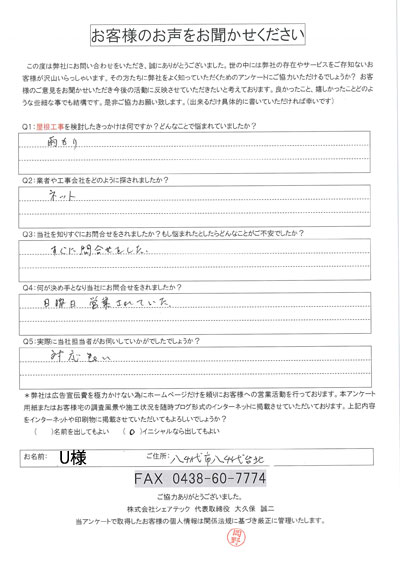 お客様のお声をお聞かせください
この度は弊社にお問い合わせをいただき、誠にありがとうございました。世の中には弊社の存在やサービスをご存知ないお
客様が沢山いらっしゃいます。その方たちに弊社をよく知っていただくためのアンケートにご協力いただけるでしょうか？ お客
様のご意見をお聞かせいただき今後の活動に反映させていただきたいと考えております。良かったこと、嬉しかったことどのよ
うな些細な事でも結構です。是非ご協力お願い致します。（出来るだけ具体的に書いていただければ幸いです）
Q1：屋根工事を検討したきっかけは何ですか？どんなことで悩まれていましたか？
雨もり
Q2：業者や工事会社をどのように探されましたか？
ネット
Q3：当社を知りすぐにお問合せをされましたか？もし悩まれたとしたらどんなことがご不安でしたか？
すぐに問合せをした。
Q4：何が決め手となり当社にお問合せをされましたか？
日曜日 営業されていた。
Q5：実際に当社担当者がお伺いしていかがでしたでしょうか？
対応 良い
＊弊社は広告宣伝費を極力かけない為にホームページだけを頼りにお客様への営業活動を行っております。本アンケート
用紙またはお客様宅の調査風景や施工状況を随時ブログ形式のインターネットに掲載させていただいております。上記内容
をインターネットや印刷物に掲載させていただいてもよろしいでしょうか？
（　）名前を出してもよい　（ o ）イニシャルなら出してもよい
お名前： U様 ご住所： 八千代市八千代台北
FAX 0438-60-7774
ご協力ありがとうございました。
株式会社シェアテック 代表取締役 大久保 誠二
当アンケートで取得したお客様の個人情報は関係法規に基づき厳正に管理いたします。